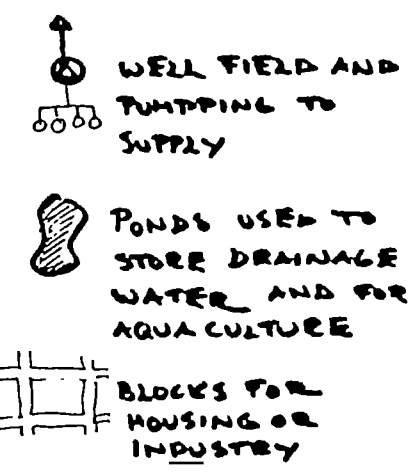 WELL FIELD AND
PUMPING TO
SUPPLY
PONDS USED TO
STORE DRAINAGE
WATER AND FOR
AQUACULTURE
BLOCKS FOR
HOUSING OR
INDUSTRY